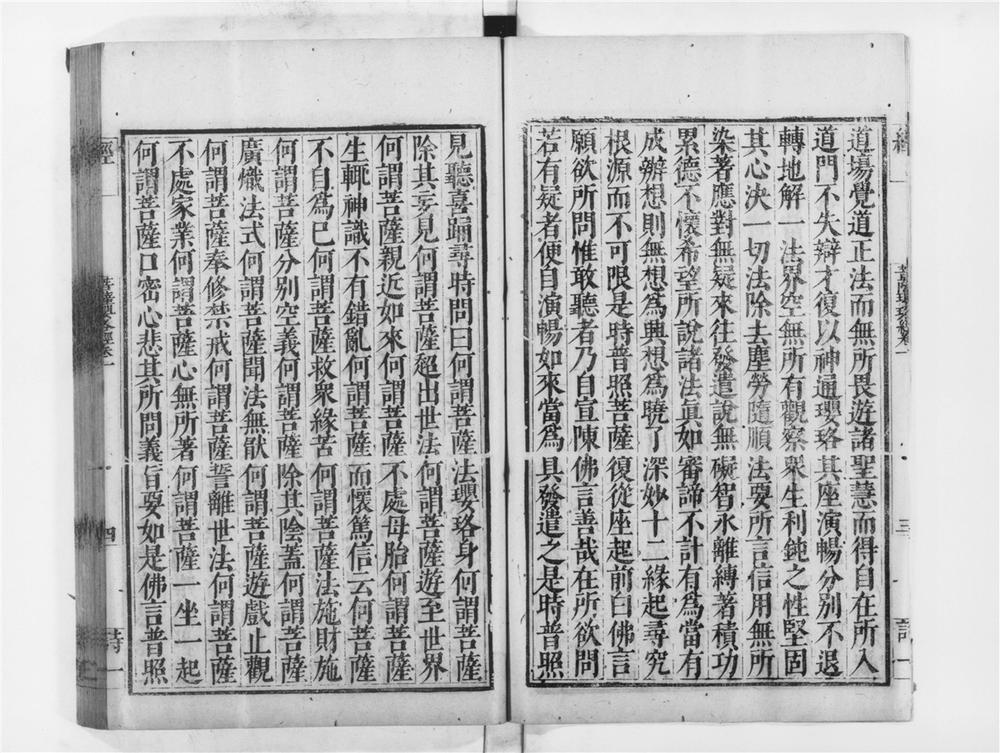 道場覺道正法而無所畏遊諸聖慧而得自在所入
道門不失辯才復以神通瓔珞其座演暢分別不退
轉地解一法界空無所有觀察衆生利鈍之性堅固
其心決一切法除去塵勞隨順法要所言信用無所
染著應對無疑來往發遣說無礙智永離縛著積功
累德不懷希望所說諸法眞如審諦不計有爲當有
成辦想則無想爲興想爲曉了深妙十二緣起尋究
根源而不可限是時普照菩薩復從座起前白佛言
願欲所問惟敢聽者乃自宣陳佛言善哉在所欲問
若有疑者便自演暢如來當爲具發遣之是時普照
見聽喜踊尋時問曰何謂菩薩法瓔珞身何謂菩薩
除其妄見何謂菩薩超出世法何謂菩薩遊至世界
何謂菩薩親近如來何謂菩薩不處母胎何謂菩薩
生輒神識不有錯亂何謂菩薩而懷篤信云何菩薩
不自爲已何謂菩薩救衆緣苦何謂菩薩法施財施
何謂菩薩分別空義何謂菩薩除其陰蓋何謂菩薩
廣熾法式何謂菩薩聞法無猒何謂菩薩遊戲止觀
何謂菩薩奉修禁戒何謂菩薩誓離世法何謂菩薩
不處家業何謂菩薩心無所著何謂菩薩一坐一起
何謂菩薩口密心悲其所問義旨要如是佛言普照
經
菩薩瓔珞經卷一
四